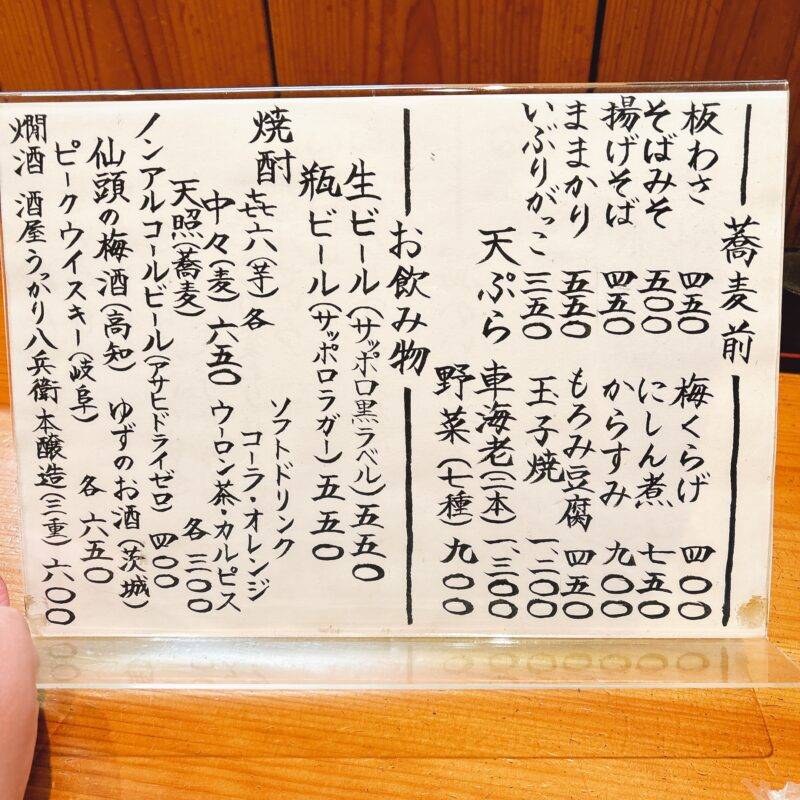 蕎麦前
板わさ 四五〇
そばみそ 五〇〇
揚げそば 四五〇
ままかり 五五〇
いぶりがっこ 三五〇
梅くらげ 四〇〇
にしん煮 七五〇
からすみ 九〇〇
もろみ豆腐 四五〇
玉子焼 一、二〇〇
天ぷら
車海老(二本) 一、三〇〇
野菜(七種) 九〇〇
お飲み物
生ビール(サッポロ黒ラベル) 五五〇
瓶ビール(サッポロラガー) 五五〇
焼酎
㐂六(芋) 各
中々(麦) 六五〇
天照(蕎麦)
ソフトドリンク
コーラ・オレンジ
ウーロン茶・カルピス
各 三〇〇
ノンアルコールビール(アサヒドライゼロ) 四〇〇
仙頭の梅酒(高知) ゆずのお酒(茨城)
ピークウイスキー(岐阜) 各 六五〇
燗酒 酒屋うっかり八兵衛 本醸造(三重) 六〇〇